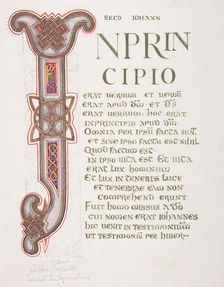 SECD IOHANN
INPRIN
CIPIO
ERAT UERBUM ET UERBŪ
ERAT APUD DM̄ ET D̄S
ERAT UERBUM. HOC ERAT
INPRINCIPIO APUD DM̄
OMNIA PER IPSŪ FACTA SUT̄
ET SINE IPSO FACTUM EST NIHIL
QUOD FACTUM EST
IN IPSO UITA EST ET UITA
ERAT LUX HOMINUM
ET LUX IN TENEBRIS LUCE
ET TENEBRAE EAM NON
COMPREHEND ERUNT
FUIT HOMO MISSUS A DŌ
CUI NOMEN ERAT IOHANNES
HIC UENIT IN TESTIMONIUM
UT TESTIMONIUM PER HIBER